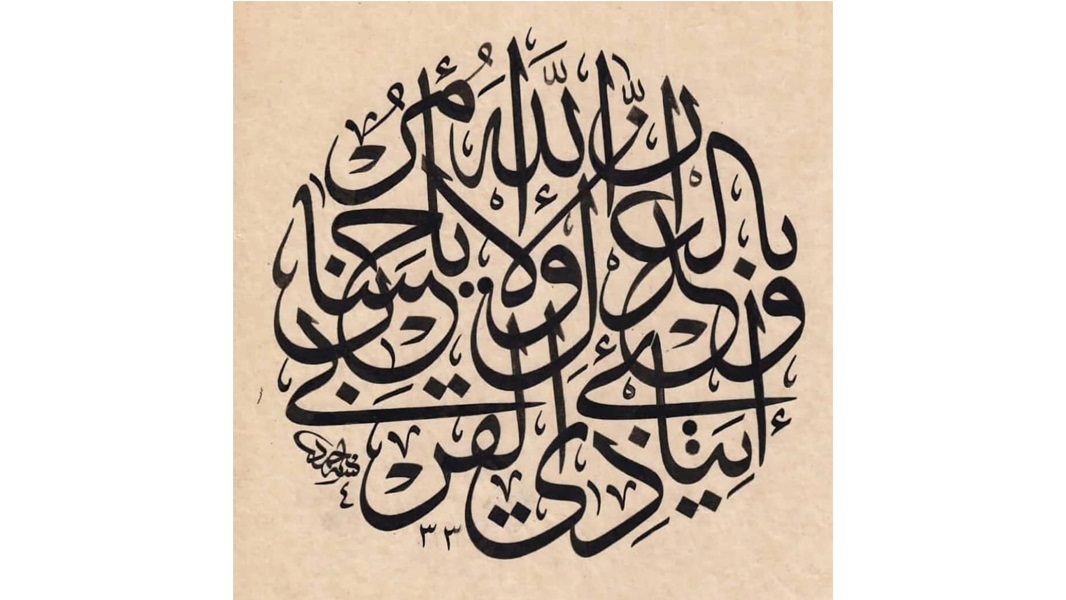 إن الله يأمر
بالعدل والإحسان
وإيتائ ذي القربى
٤
٣٣